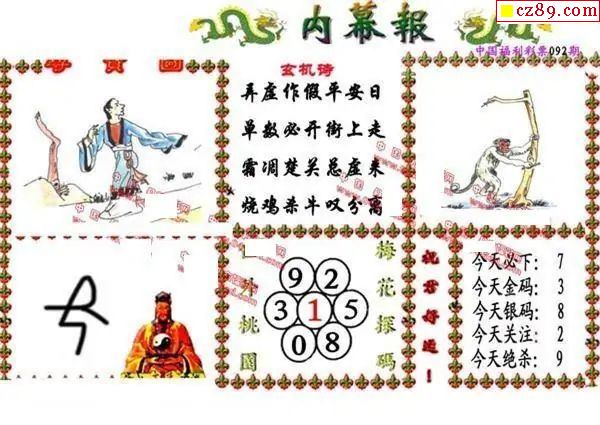 cz89.com
内幕報
中国福利彩票092期
字贡圖
玄机诗
弄虚作假平安日
单数必开街上走
霜凋楚关总虚来
烧鸡杀牛叹分离
外桃園
9 2
3 1 5
0 8
梅花探码
祝君好运！
今天必下：7
今天金码：3
今天银码：8
今天关注：2
今天绝杀：9